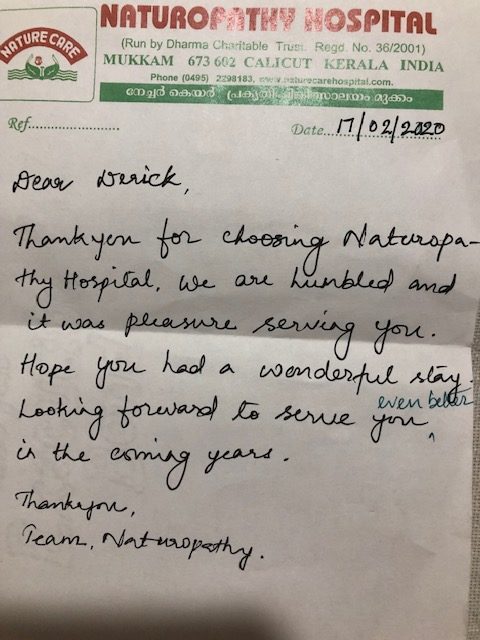 NATUROPATHY HOSPITAL
NATURE CARE
(Run by Dharma Charitable Trust. Regd. No. 36/2001)
MUKKAM 673 602 CALICUT KERALA INDIA
Phone (0495) 2298183, www.naturecarehospital.com.
നേച്ചർ കെയർ പ്രകൃതിചികിത്സാലയം മുക്കം
Ref....................... Date...17/02/2020
Dear Derick,
Thankyou for choosing Naturopa-
thy Hospital, we are humbled and
it was pleasure serving you.
Hope you had a wonderful stay.
even better
Looking forward to serve you ^
in the coming years.
Thankyou,
Team, Naturopathy.